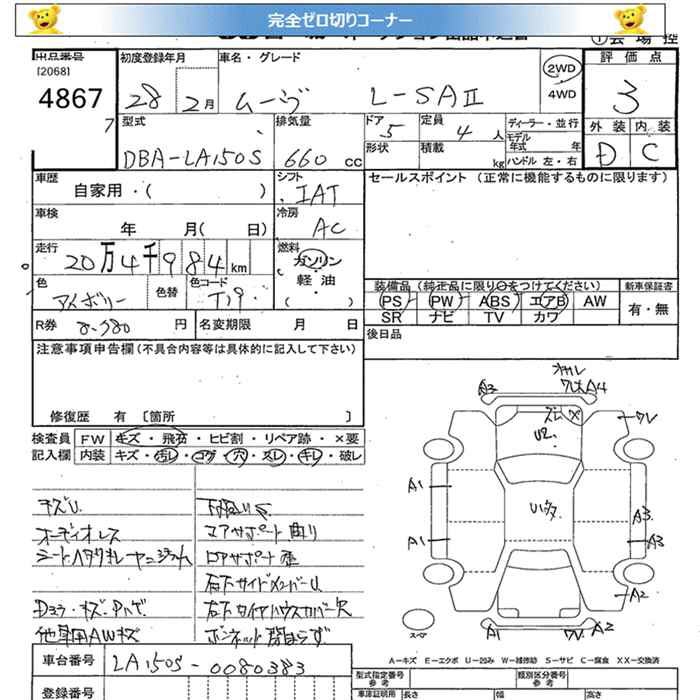 完全ゼロ切りコーナー
出品番号 初度登録年月 車名・グレード 評価点
[2068]
4867 28 2月 ムーヴ L-SAⅡ 2WD 4WD 3
型式 排気量 ドア 5 定員 4人 ディーラー・並行 外装 内装
7 モデル年式 年
DBA-LA150S 660cc 形状 積載 kg ハンドル 左・右 D C
車歴 シフト セールスポイント (正常に機能するものに限ります)
自家用・( ) IAT
車検 冷房
年 月( 日) AC
走行 燃料
20万4千984km ガソリン
軽油
色 色替 色コード ( ) 装備品 (純正品に限り○をつけてください) 新車保証書
アイボリー T19 PS PW ABS エアB AW 有・無
SR ナビ TV カワ
R券 8.380円 名変期限 月 日 後日品
注意事項申告欄 (不具合内容等は具体的に記入して下さい)
修復歴 有 [箇所 ]
検査員 FW キズ・飛石・ヒビ割・リペア跡・×要
記入欄 内装 キズ・汚レ・コゲ・穴・スレ・キレ・破レ
A3 ワレ大A4
ズレ X
U2 ワレ
A1 U1多
A3
A1 A3
A2
スペア A1 A2
キズU
オーディオレス コアサポート曲リ
コアサポート歪
右下サイドメンバーU
右下タイヤハウスカバー欠
他車用AWキズ ボンネット閉まらず
A−キズ E−エクボ U−凹み W−補修跡 S−サビ C−腐食 XX−交換済
車台番号 LA150S-0080383
型式指定番号 参考 類別区分番号 参考
登録番号 車庫証明用 参考 長さ 幅 高さ